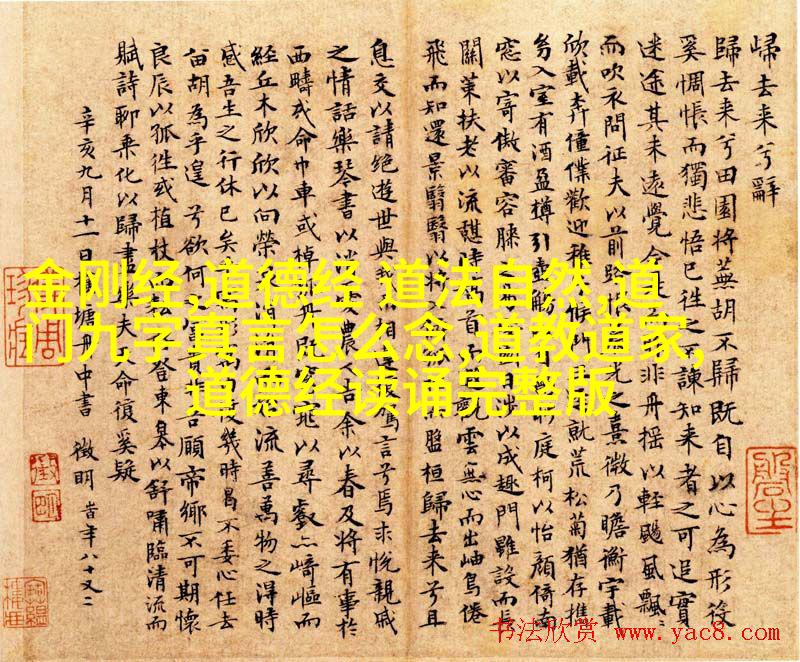 歸去来兮辭
歸去来兮田園將蕪胡不歸既自以心為形役
奚惆悵而獨悲悟已徃之不諫知来者之可追實
迷途其未遠覺今非舟摇以輕颺風飄〻
而吹衣問征夫以前路恨光之熹微乃瞻衡宇載
欣載奔僮僕歡迎稚候就荒松菊猶存携
㓜入室有酒盈樽引壺觴庭柯以怡顔倚南
窓以寄傲審容膝以成趣門雖設而長
關策扶老以流憩時首觀雲無心而出岫鳥倦
飛而知還景翳翳以將盤桓歸去来兮且
息交以請絶遊世與我相言兮焉求悦親戚
之情話樂琴書以農人告余以春及將有事於
西疇或命巾車或棹舟既窕以尋壑亦崎嶇而
經丘木欣欣以向榮流善萬物之淂時
感吾生之行休已矣幾時曷不委心任去
畱胡為乎遑兮欲何富貴吾願帝鄉不可期懷
良辰以孤徃或植杖登東皋以舒嘯臨清流而
賦詩聊乗化以歸樂夫天命復奚疑
辛亥九月十一日橫塘舟中書 徵明 年八十又二
金刚经,道德经 道法自然,道
门九字真言怎么念,道教道家,
道德经读诵完整版
书法欣赏 www.yac8.com